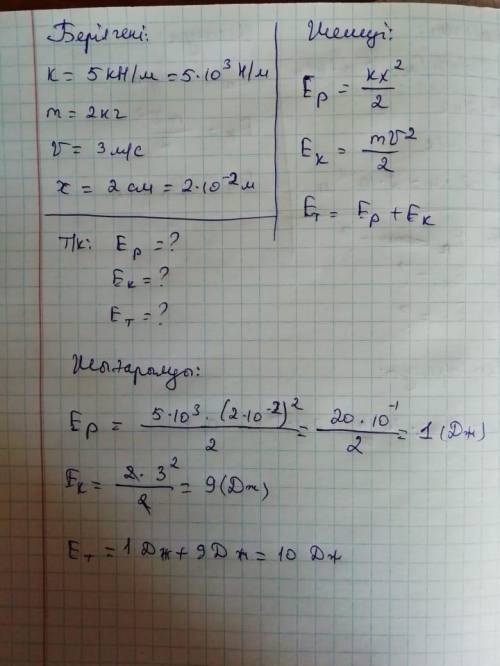 Берілгені:
k = 5 кН/м = 5·10³ Н/м
m = 2 кг
v = 3 м/с
x = 2 см = 2·10⁻² м
Т/к: Eₚ = ?
Eₖ = ?
Eₜ = ?
Шешуі:
Eₚ = kx²/2
Eₖ = mv²/2
Eₜ = Eₚ + Eₖ
Шығарылуы:
Eₚ = 5·10³·(2·10⁻²)²/2 = 20·10⁻¹/2 = 1 (Дж)
Eₖ = 2·3²/2 = 9 (Дж)
Eₜ = 1 Дж + 9 Дж = 10 Дж